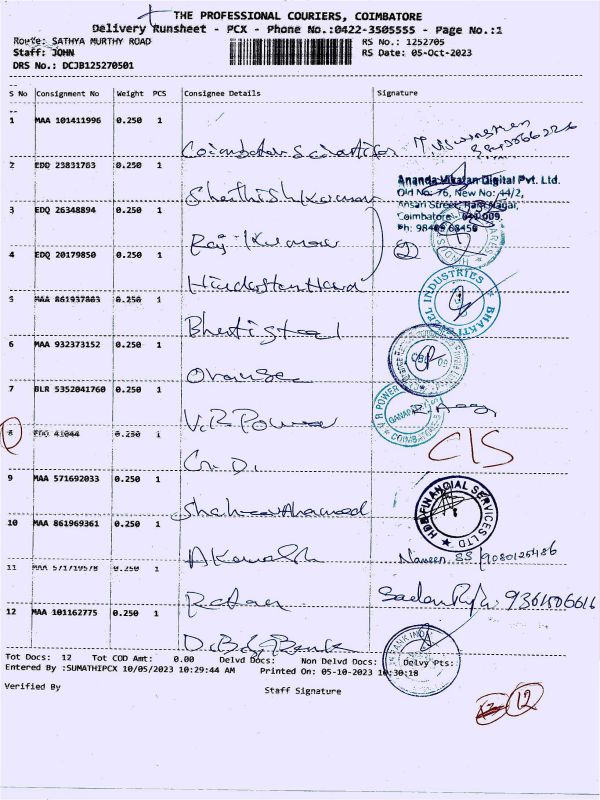 THE PROFESSIONAL COURIERS, COIMBATORE
Delivery Runsheet - PCX - Phone No.:0422-3505555 - Page No.:1
Route: SATHYA MURTHY ROAD RS No.: 1252705
Staff: JOHN RS Date: 05-Oct-2023
DRS No.: DCJB125270501
S No Consignment No Weight PCS Consignee Details Signature
1 MAA 101411996 0.250 1
Coimbatore Scientific
2 EDD 23831763 0.250 1
Ananda Vikatan Digital Pvt. Ltd.
Old No: 76, New No: 44/2,
Shathish Kumar
Ansari Street, Ram Nagar,
3 EDQ 26348894 0.250 1
Coimbatore - 641 009.
Ph: 98409 68450
Raj Kumar
4 EDQ 20179850 0.250 1
Hindustan Hard
5 MAA 861937803 0.250 1
BHAKTI STEEL INDUSTRIES
Bhakti Steel
6 MAA 932373152 0.250 1
Orange
7 BLR 5352041760 0.250 1
V.R POWER
GANAPATHY
COIMBATORE
V.R Power
8 EDQ 41044 0.250 1
C/S
9 MAA 571692033 0.250 1
HDB FINANCIAL SERVICES LTD
10 MAA 861969361 0.250 1
Naveen SS 9080125486
11 MAA 571719578 0.250 1
9361506616
12 MAA 101162775 0.250 1
Bank
Tot Docs: 12 Tot COD Amt: 0.00 Delvd Docs: Non Delvd Docs: Delvy Pts:
Entered By :SUMATHIPCX 10/05/2023 10:29:44 AM Printed On: 05-10-2023 10:30:18
Verified By Staff Signature
12